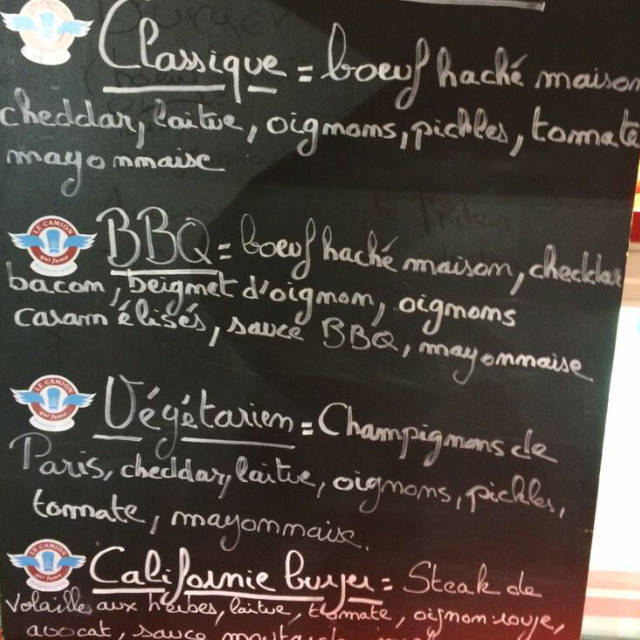 Classique = boeuf haché maison
cheddar, laitue, oignons, pickles, tomate
mayonnaise
LE CAMION qui fume
BBQ = boeuf haché maison, cheddar
bacon, beignet d'oignon, oignons
caramélisés, sauce BBQ, mayonnaise
LE CAMION qui fume
Végétarien = Champignons de
Paris, cheddar, laitue, oignons, pickles,
tomate, mayonnaise.
LE CAMION qui fume
Californie burger = Steak de
volaille aux herbes, laitue, tomate, oignon rouge,
avocat, sauce